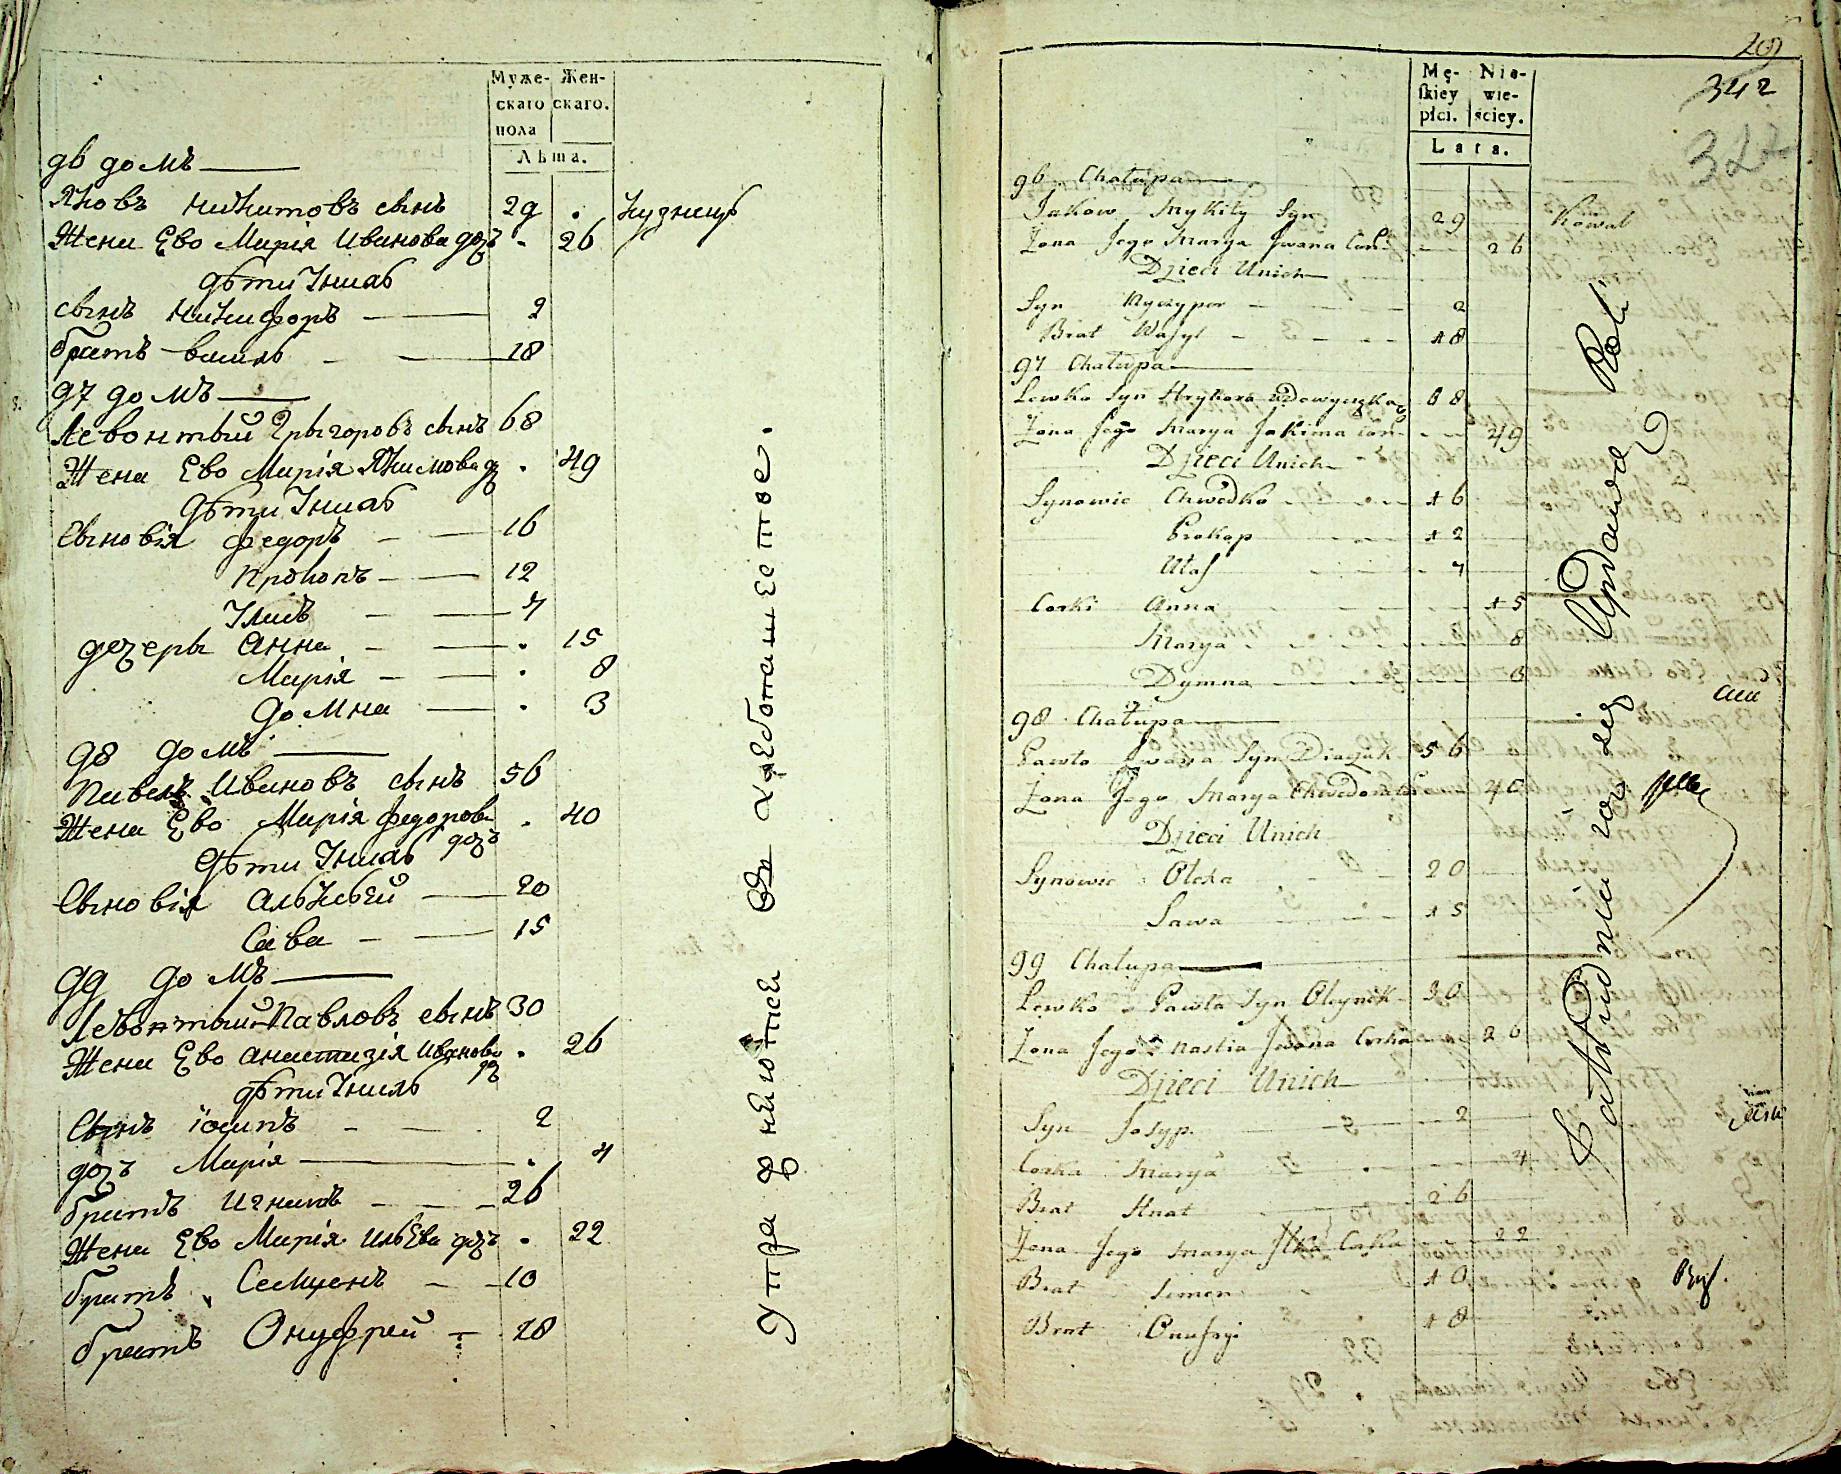 Муже- Жен-
скаго скаго.
пола
Лѣта.
96 домъ
Яковъ Никитовъ сынъ 29 . кузнецъ
Жена Ево Марія Иванова дочь . 26
дѣти Унихъ
сынъ Никифоръ 2
братъ василь 18
97 домъ
Левонтый Грыгоровъ сынъ 68
Жена Ево Марія Якимова дч . 49
дѣти Унихъ
Сыновія Федоръ 16
Прокопъ 12
Уласъ 7
дочеры Анна . 15
Марія . 8
Домна . 3
98 домъ
Павелъ Ивановъ сынъ 56
Жена Ево Марія Федорова дочъ . 40
Дѣти Унихъ
Сыновія Алексѣй 20
Сава 15
99 домъ
Левонтый Павловъ сынъ 30
Жена Ево Анастазія Иванова дч . 26
дѣти Унихъ
Сынъ Іосипъ 2
дочъ Марія . 4
братъ Игнатъ 26
Жена Ево Марія Ильева дочъ . 22
братъ Семценъ 10
братъ Онуфрей 18
Упражняются в хлебопашестве.
209
342
322
Mę- Nie-
skiey wie-
płci. ściey.
Lata.
96 Chałupa
Jakow Mykity Syn 29 Kowal
Zona Jego Marya Jwana Cor. 26
Dzieci Unich
Syn Nyczypor 2
Brat Wasyl 18
97 Chałupa
Lewko Syn Hryhora 68
Zona Jego Marya Jakima Cor. 49
Dzieci Unich
Synowie Chwedko 16
Prokop 12
Ułas 7
Corki Anna 15
Marya 8
Dymna 3
98 Chałupa
Pawło Jwana Syn Diaczuk 56
Zona Jego Marya Chwedora 40
Dzieci Unich
Synowie Olexa 20
Sawa 15
99 Chałupa
Lewko Pawła Syn Oleynik 30
Zona Jego Nastia Jwana Corka 26
Dzieci Unich
Syn Josyp. 2
Corka Marya 4
Brat Hnat 26
Zona Jego Marya Jlka Corka 22
Brat Semen 10
Brat Onufryi 18
Zatrudnia ią się Uprawą Roli